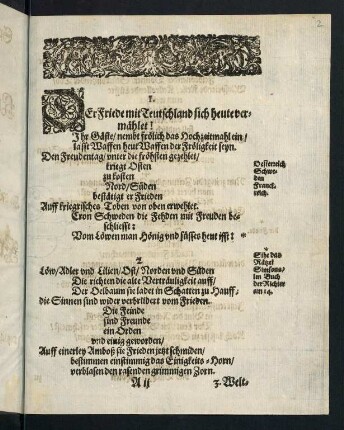 2
1.
DEr Friede mit Teutschland sich heute ver-
mählet!
Ihr Gäste/ nembt frölich das Hochzeitmahl ein/
lasst Waffen heut Waffen der Fröligkeit seyn.
Den Freudentag/ unter die fröhsten gezehlet/
kriegt Osten
zu kosten
Nord/ Süden
bestätigt er Frieden
Auff kriegrisches Toben von oben erwehlet.
Cron Schweden die Fehden mit Freuden be-
schliesst:
Vom Löwen man Hönig und süsses heut isst: *
Oesterreich
Schwe-
den
Franck-
reich.
*
Sihe das
Rätzel
Simsons/
im Buch
der Richter
am 14.
2.
Löw/ Adler und Lilien/ Ost/ Norden und Süden
Die richten die alte Vertrauligkeit auff/
Der Oelbaum sie ladet in Schatten zu Hauff/
die Sinnen sind wider verbrüdert vom Frieden.
Die Feinde
sind Freunde
ein Orden
und einig geworden/
Auff einerley Amboß sie Frieden jetzt schmiden/
bestimmen einstimmig das Einigkeits-Horn/
verblasen den rasenden grimmigen Zorn.
A ij
3. Welt-